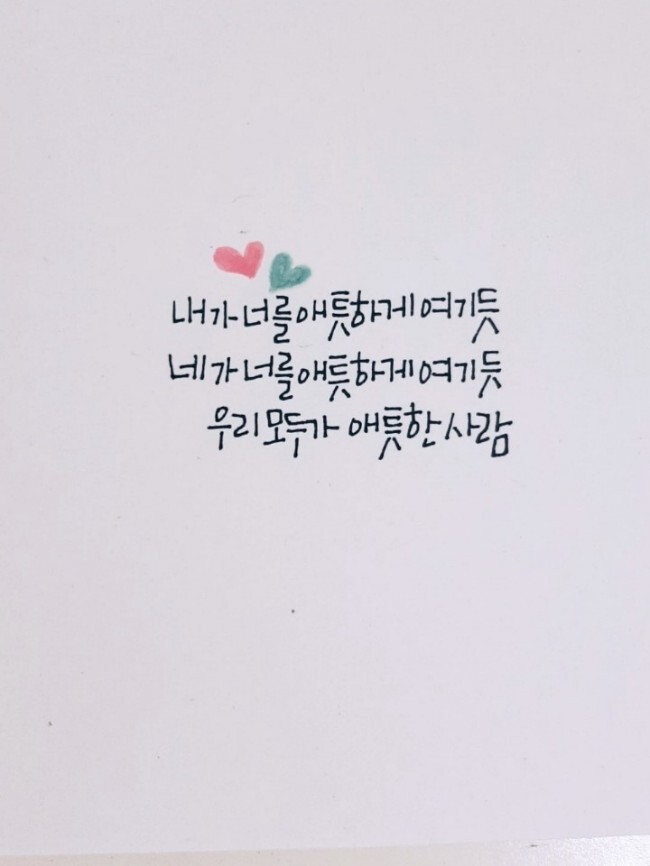 내가 너를 애틋하게 여기듯
네가 너를 애틋하게 여기듯
우리 모두가 애틋한 사람